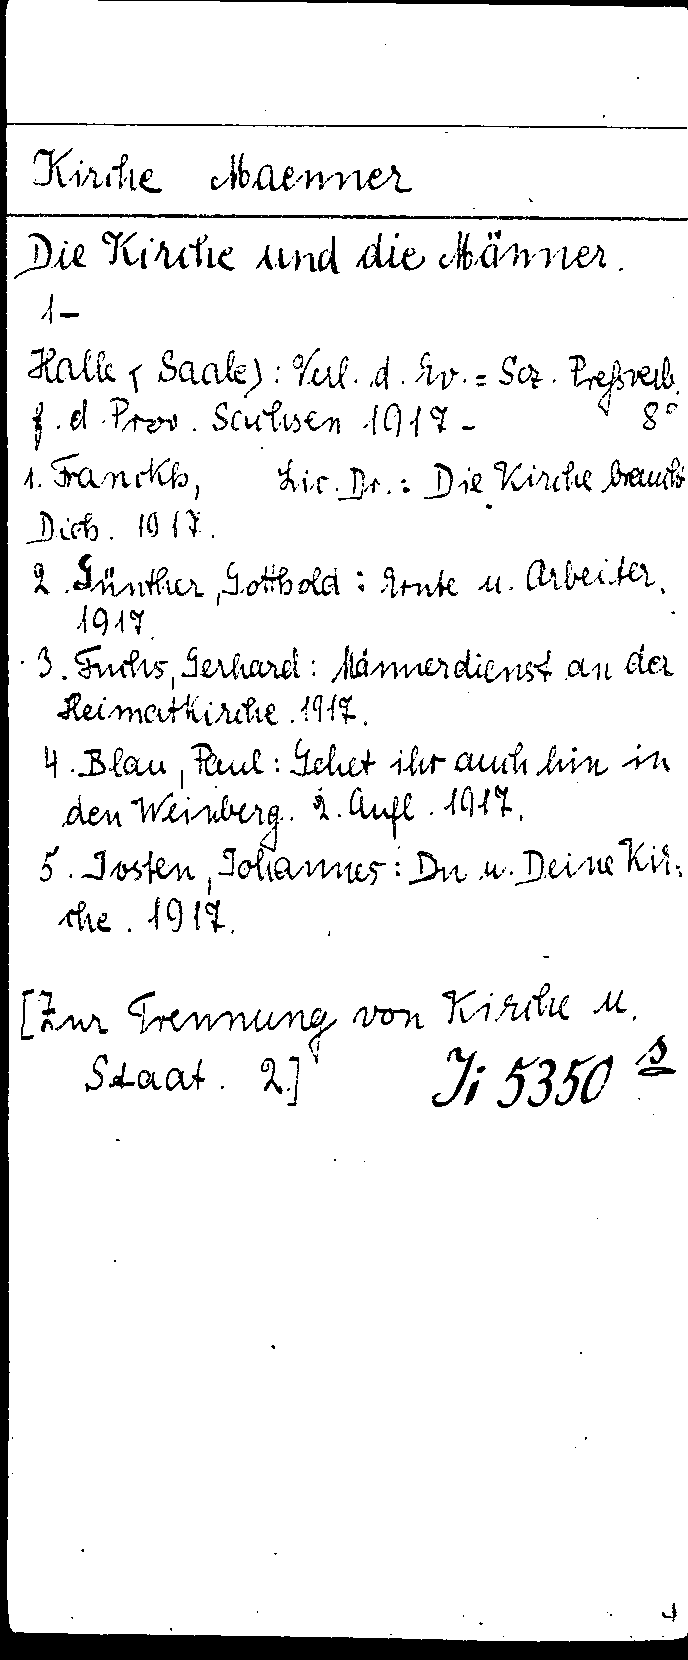 Kirche Maenner
Die Kirche und die Männer.
1-
Halle (Saale): Verl. d. Ev.=Soz. Preßverb.
f. d. Prov. Sachsen 1917- 8°
1. Franckh, Lic. Dr.: Die Kirche braucht
Dich. 1917.
2. Günther, Gotthold: Ernte u. Arbeiter.
1917.
3. Fuchs, Gerhard: Männerdienst an der
Heimatkirche. 1917.
4. Blau, Paul: Gehet ihr auch hin in
den Weinberg. 2. Aufl. 1917.
5. Josten, Johannes: Du u. Deine Kir=
che. 1917.
[Zur Trennung von Kirche u.
Staat. 2.] Ji 5350 s